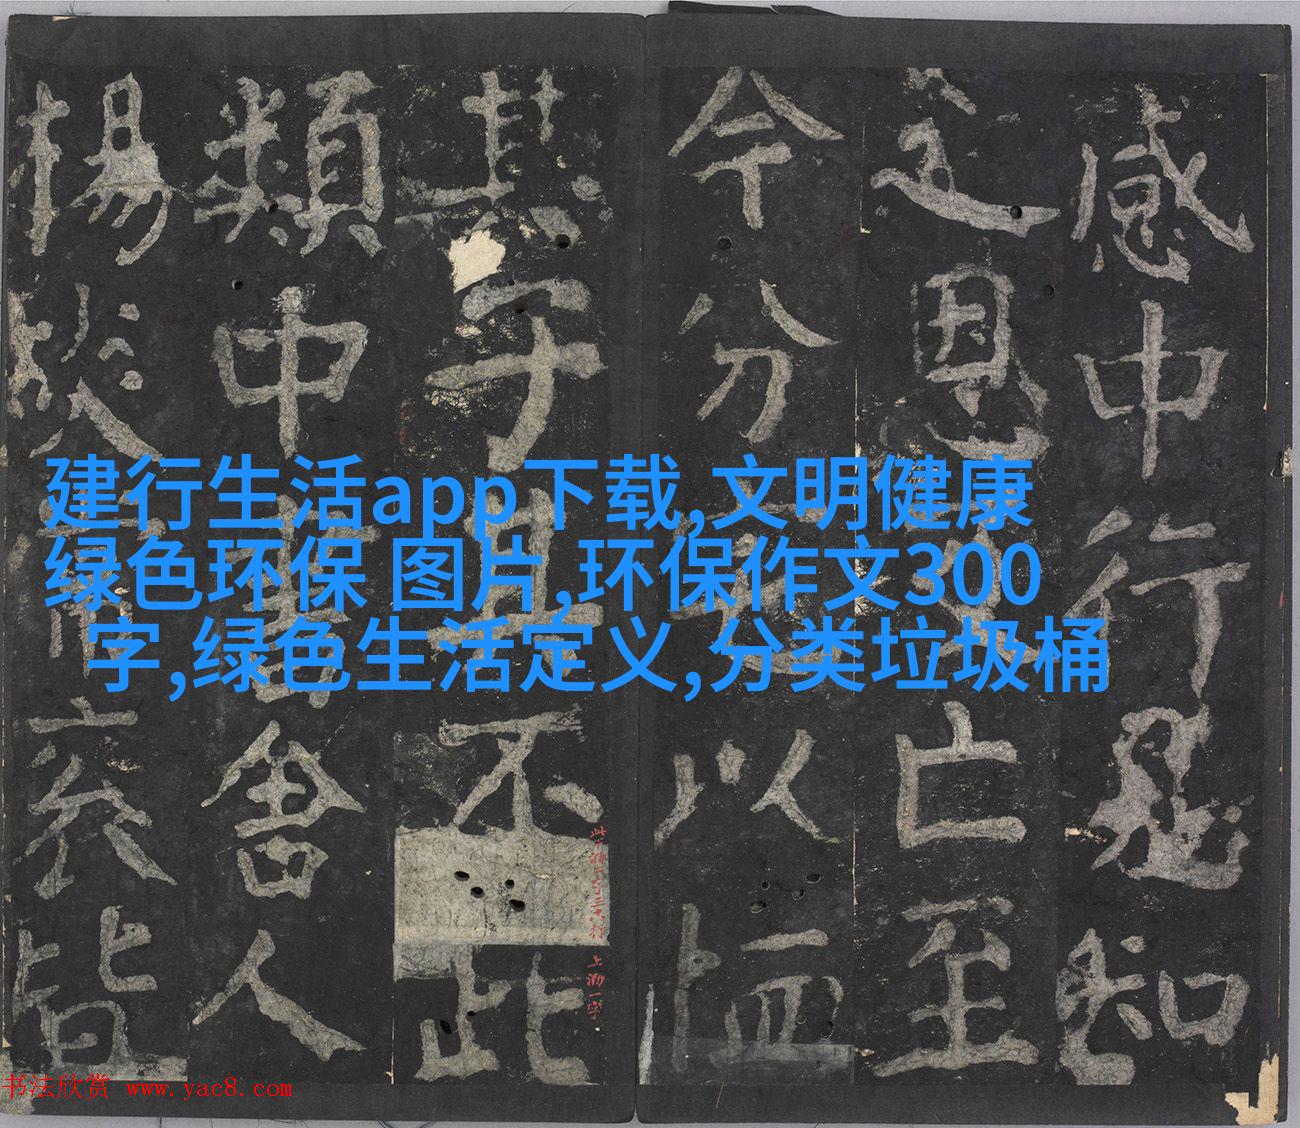 建行生活app下载,文明健康
绿色环保 图片,环保作文300
字,绿色生活定义,分类垃圾桶
感中行愚知
之恩亡至
今分以恤
其子其不此
類中書舍人
楊炎皆
书法欣赏 www.yac8.com